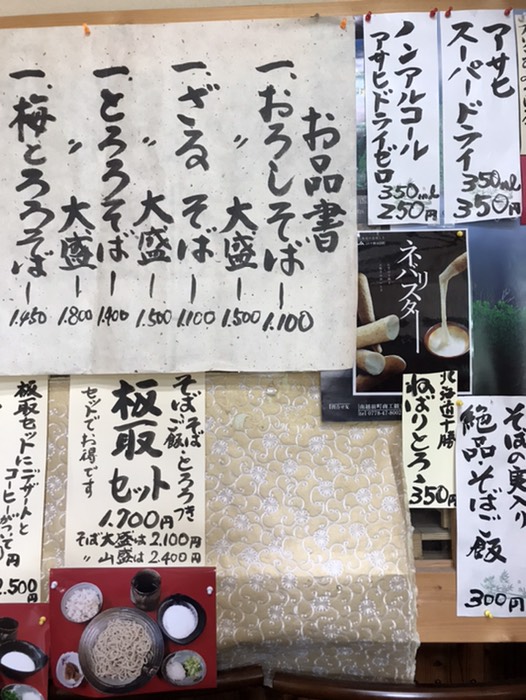 お品書
一、おろしそば ー 1.100
〃 大盛 ー 1.500
一、ざるそば ー 1.100
〃 大盛 ー 1.500
一、とろろそば ー 1.400
〃 大盛 ー 1.800
一、梅とろろそば ー 1.450
アサヒ
スーパードライ
350ml
350円
ノンアルコール
アサヒドライゼロ
350ml
250円
ネバリスター
北海道十勝
ねばりとろろ
350円
そばの実入り
絶品そばご飯
300円
そば・とろろつき
そばご飯
板取セット
セットでお得です
1.700円
そば大盛は2.100円
〃 山盛は2.400円
板取セットにデザートと
コーヒーがついて
2.500円